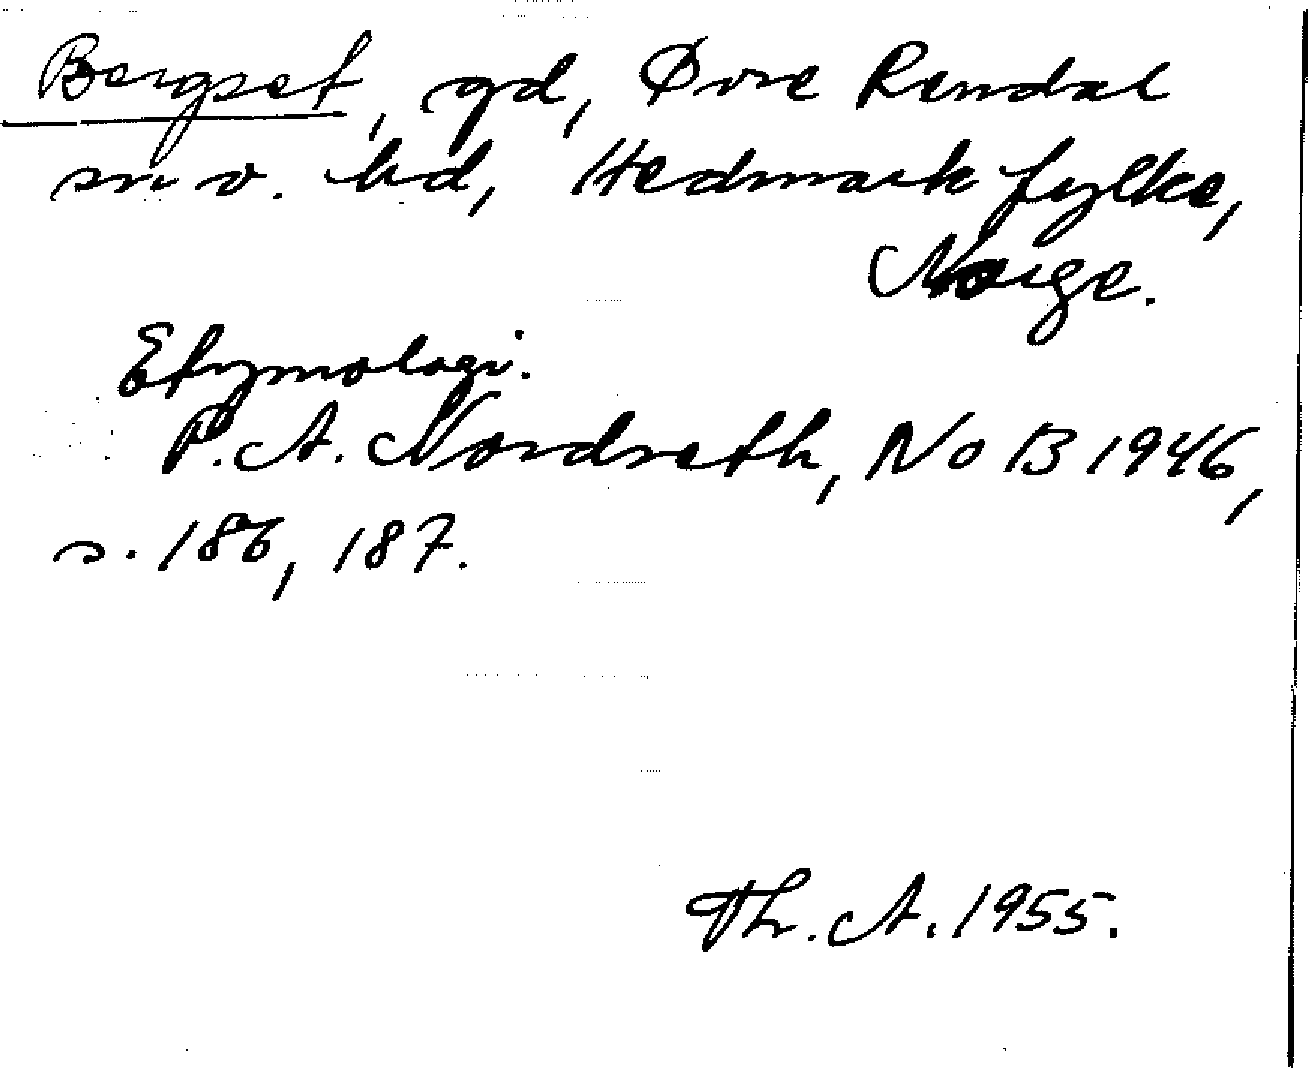 Bergset, gd, Øvre Rendal
sn o. hd, Hedmark fylke,
Norge.
Etymologi.
P. A. Nordseth, NoB 1946,
s. 186, 187.
Th. A. 1955.